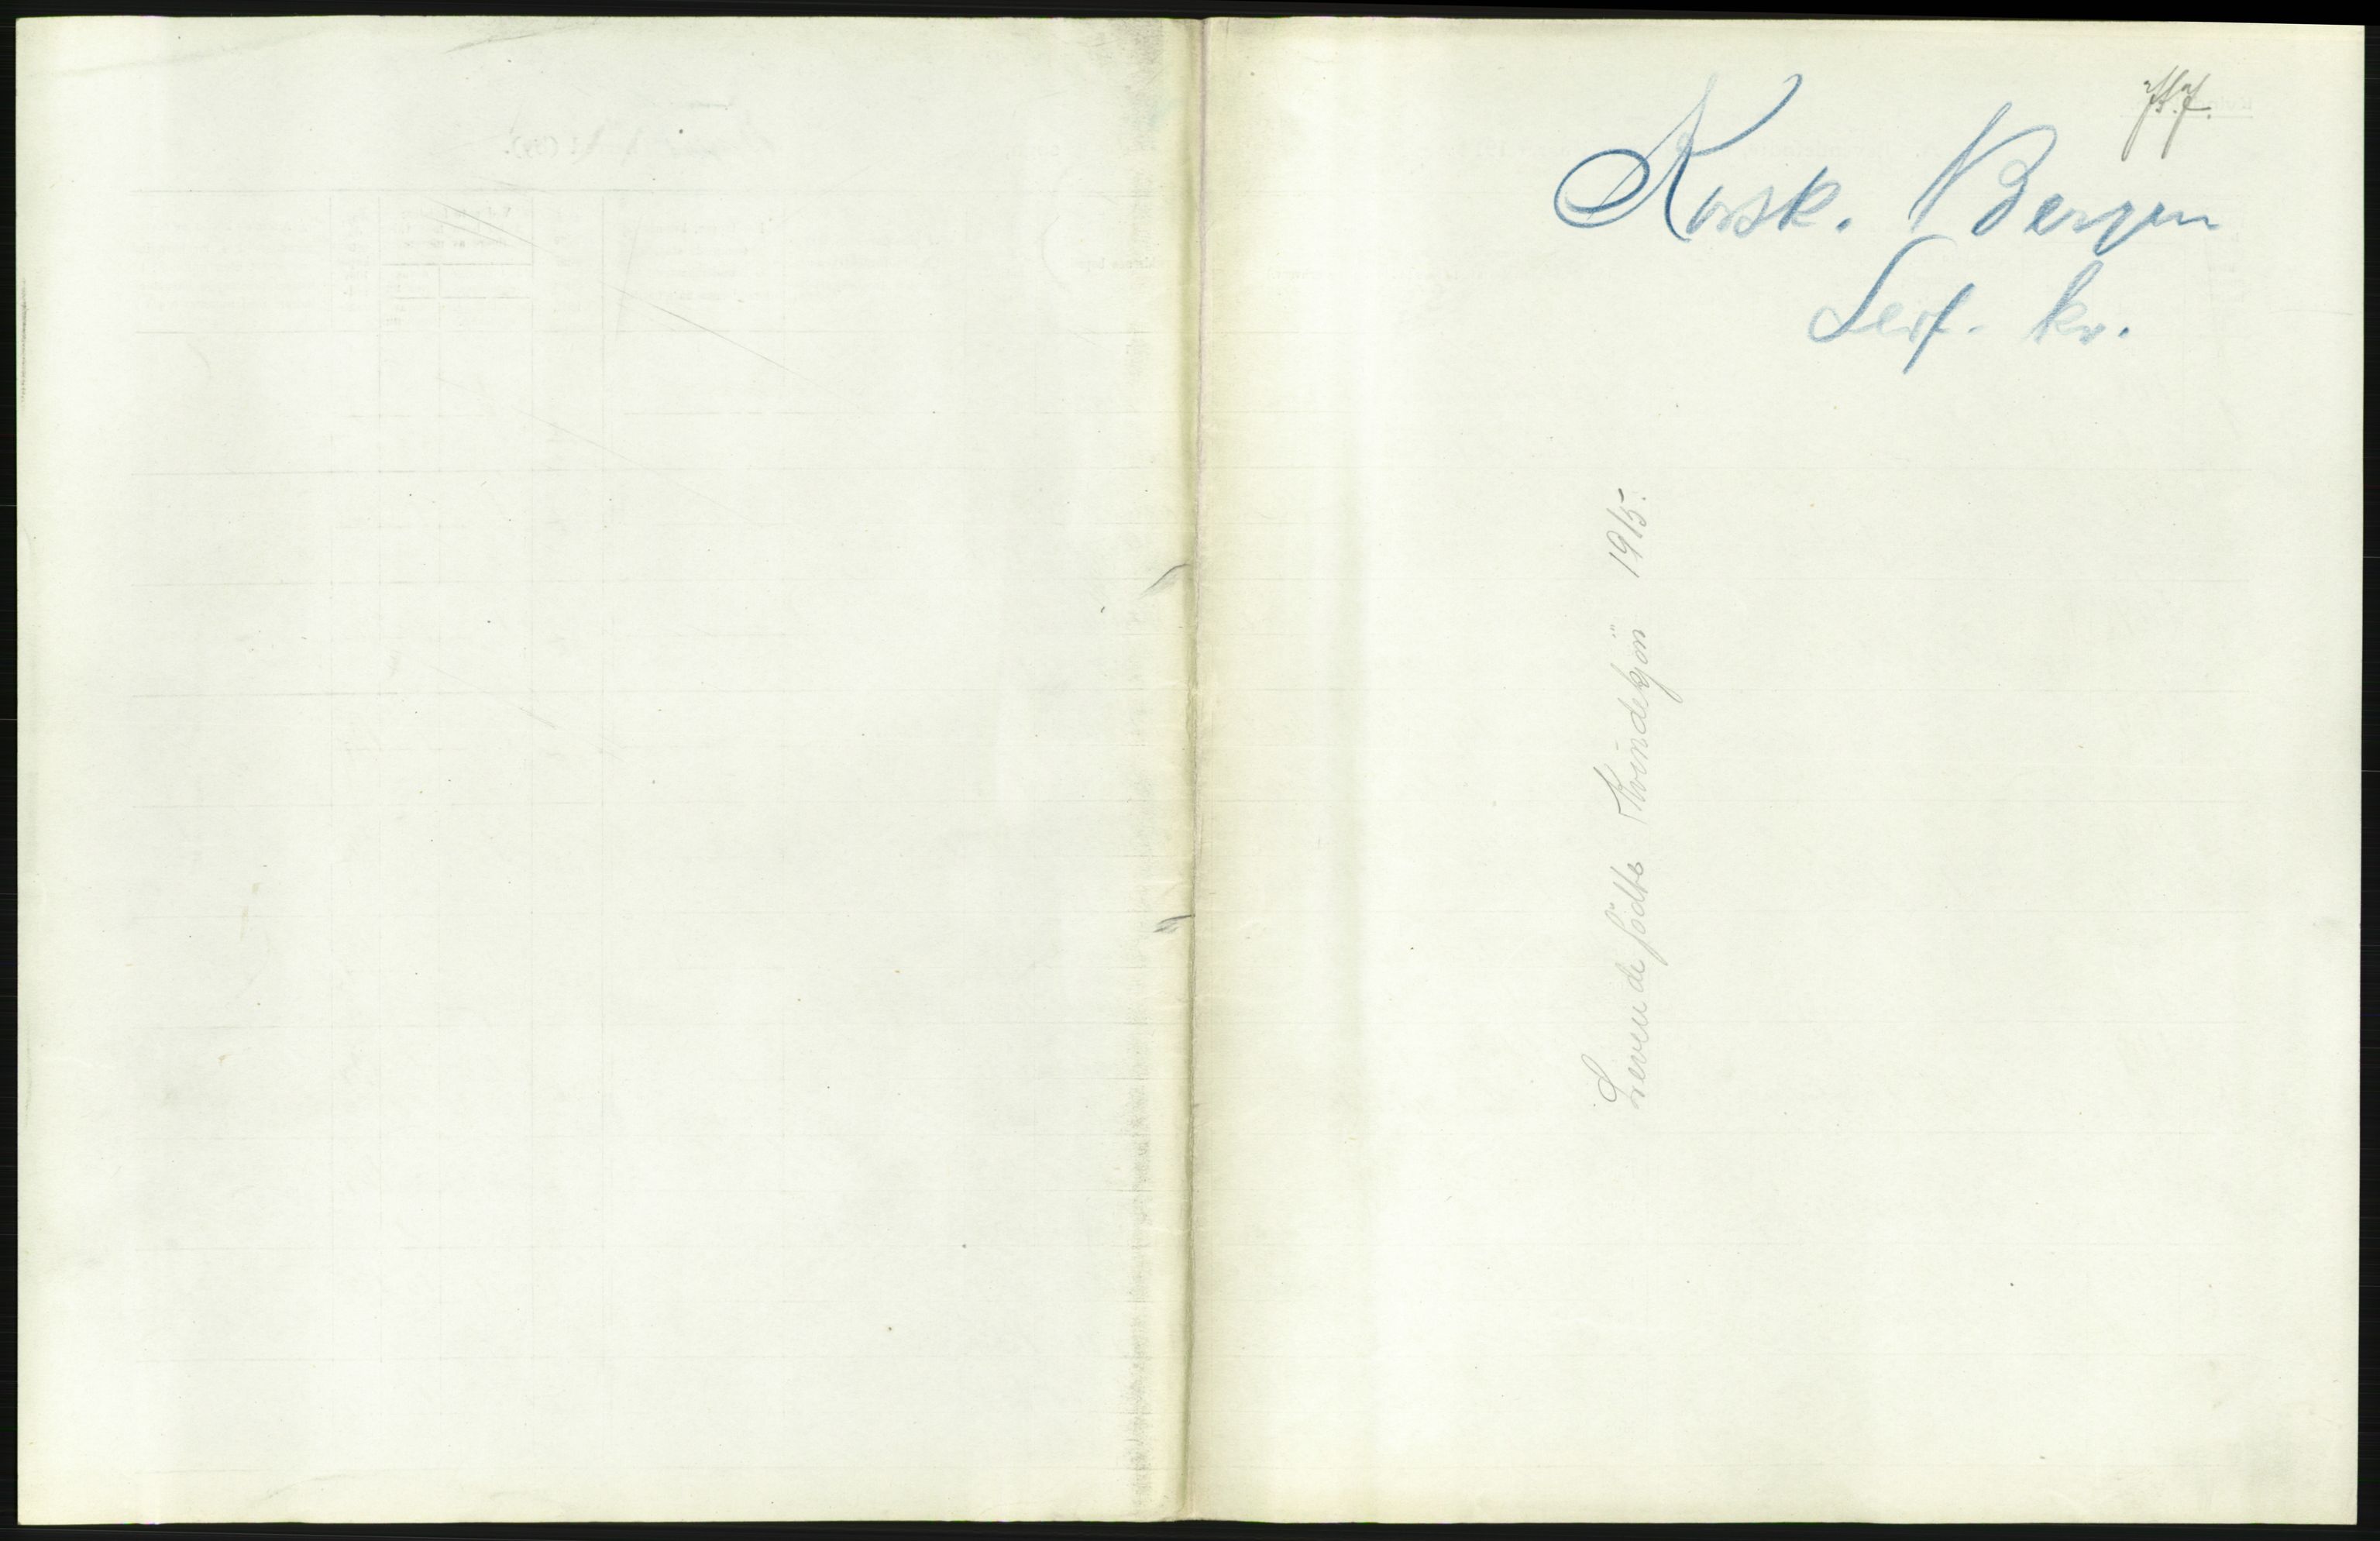 Korsk. Bergen
Levf. kv.
Levende fødte Kvindekjøn 1915.